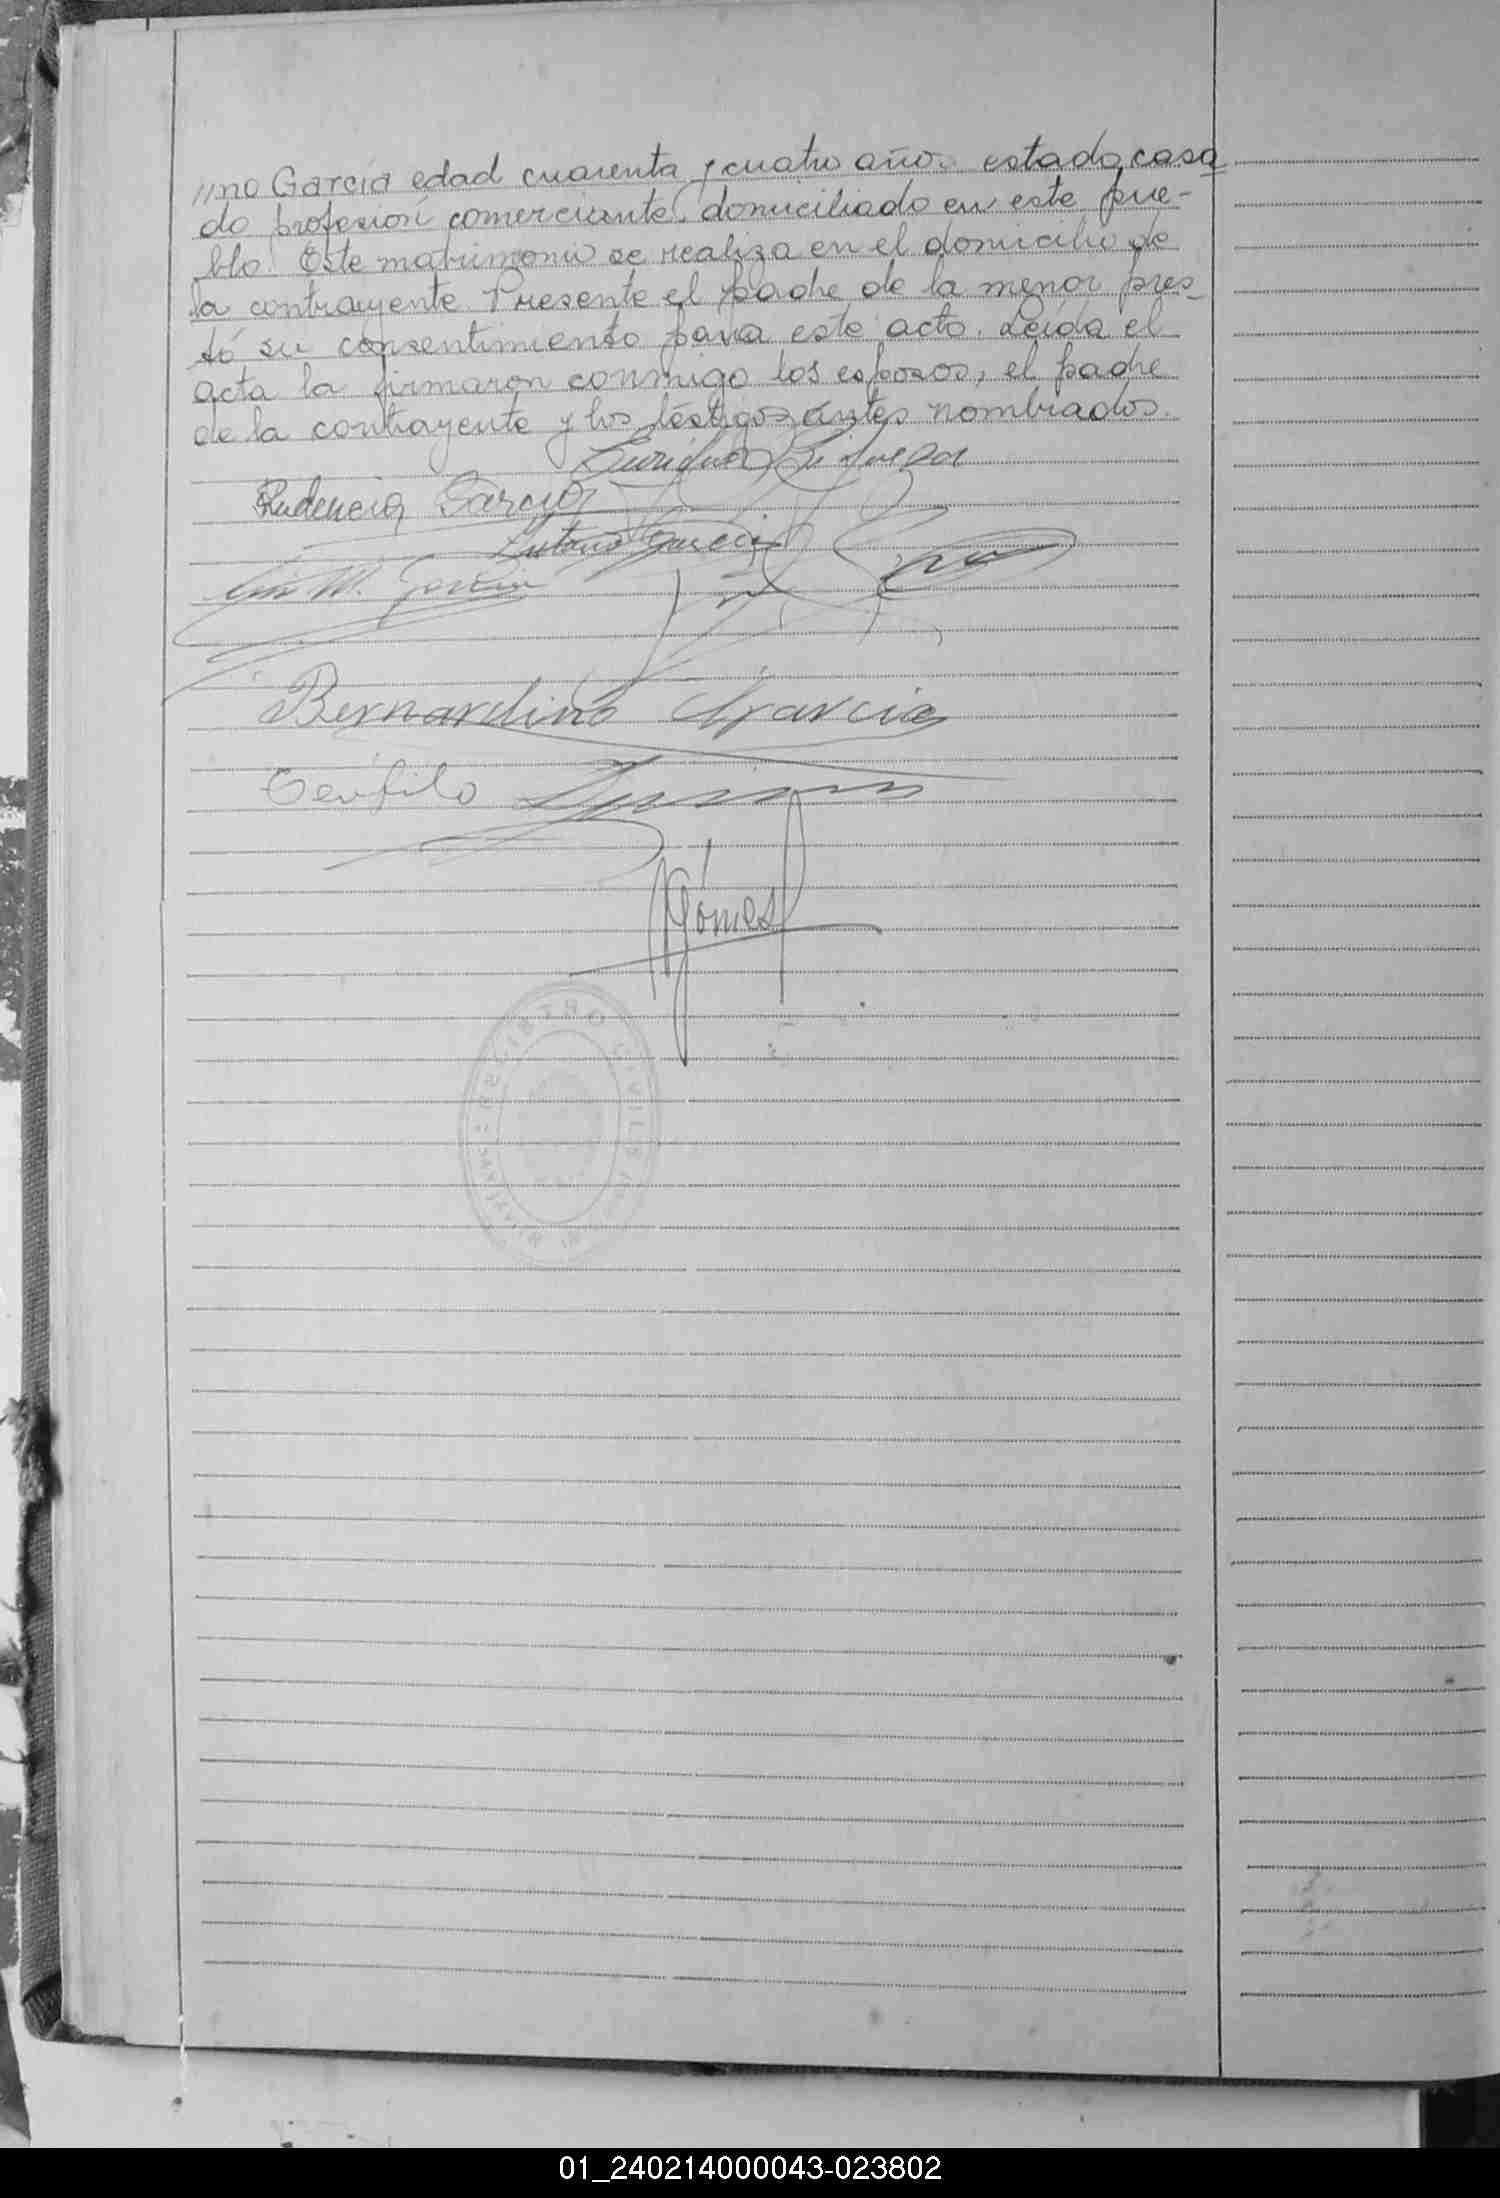 //no García edad cuarenta y cuatro años estado casa
do profesion comerciante domiciliado en este pue-
blo. Este matrimonio se realiza en el domicilio de
la contrayente. Presente el padre de la menor pres_
tó su consentimiento para este acto. Leída el
acta la firmaron conmigo los esposos, el padre
de la contrayente y los testigos antes nombrados.
Rudencia Garcia
Garcia
M. Garcia
Bernardino Garcia
Teofilo
Gómes
REGISTRO CIVIL
01_240214000043-023802